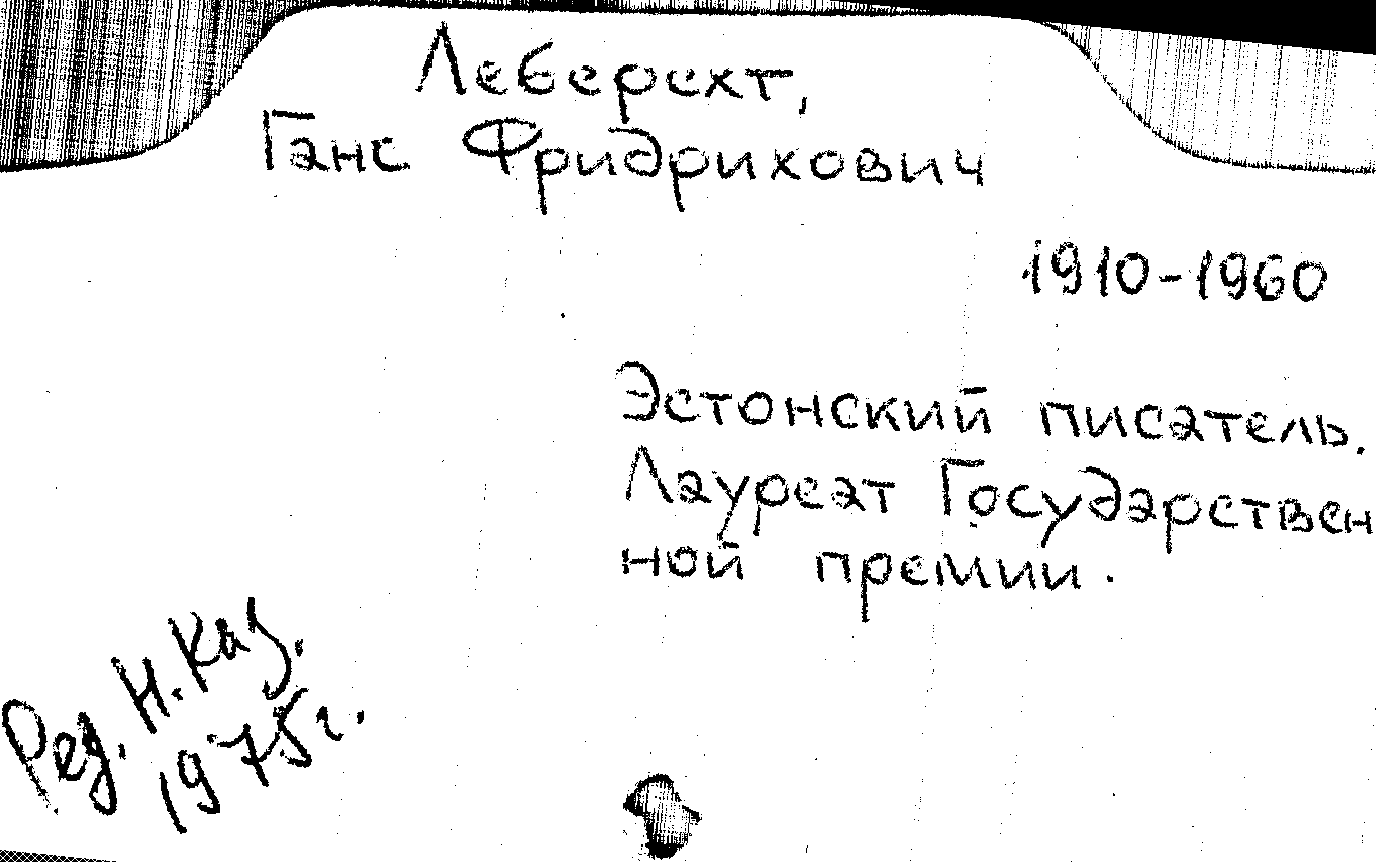 Леберехт,
Ганс Фридрихович
1910-1960
Эстонский писатель.
Лауреат Государствен
ной премии.
Ред. Н. Каз.
1975г.